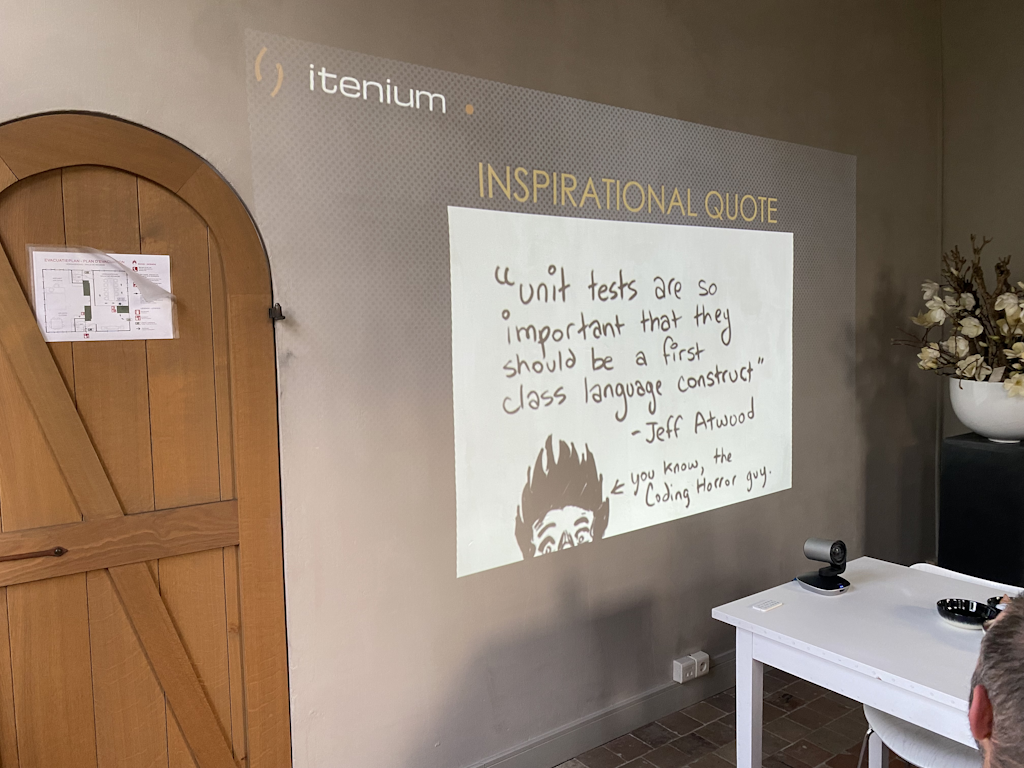 itenium
INSPIRATIONAL QUOTE
“unit tests are so
important that they
should be a first
class language construct”
-Jeff Atwood
you know, the
Coding Horror guy.